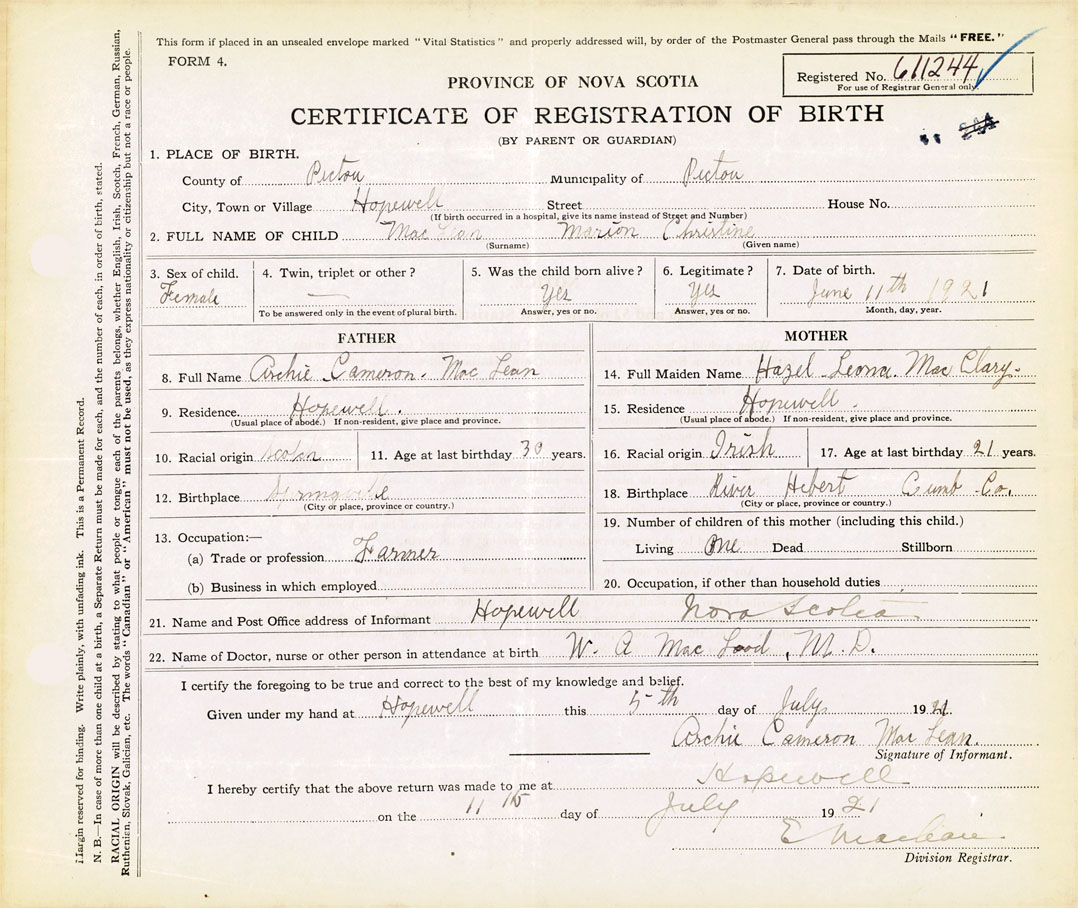 This form if placed in an unsealed envelope marked "Vital Statistics" and properly addressed will, by order of the Postmaster General pass through the Mails "FREE."
FORM 4.
Registered No. 611244
For use of Registrar General only.
PROVINCE OF NOVA SCOTIA
CERTIFICATE OF REGISTRATION OF BIRTH
(BY PARENT OR GUARDIAN)
1. PLACE OF BIRTH.
County of Pictou Municipality of Pictou
City, Town or Village Hopewell Street House No.
(If birth occurred in a hospital, give its name instead of Street and Number)
2. FULL NAME OF CHILD Mac Lean Marion Christine
(Surname) (Given name)
3. Sex of child. 4. Twin, triplet or other? 5. Was the child born alive? 6. Legitimate? 7. Date of birth.
Female — Yes Yes June 11th 1921
To be answered only in the event of plural birth. Answer, yes or no. Answer, yes or no. Month, day, year.
FATHER
8. Full Name Archie Cameron Mac Lean
9. Residence. Hopewell.
(Usual place of abode.) If non-resident, give place and province.
10. Racial origin 11. Age at last birthday 30 years.
12. Birthplace Springville
(City or place, province or country.)
13. Occupation:—
(a) Trade or profession Farmer
(b) Business in which employed
MOTHER
14. Full Maiden Name Hazel Leona Mac Clary.
15. Residence Hopewell.
(Usual place of abode.) If non-resident, give place and province.
16. Racial origin Irish 17. Age at last birthday 21 years.
18. Birthplace River Hebert Cumb Co.
(City or place, province or country.)
19. Number of children of this mother (including this child.)
Living One Dead Stillborn
20. Occupation, if other than household duties
21. Name and Post Office address of Informant Hopewell Nova Scotia
22. Name of Doctor, nurse or other person in attendance at birth W. A Mac Lood, M.D.
I certify the foregoing to be true and correct to the best of my knowledge and belief.
Given under my hand at Hopewell this 5th day of July 1921.
Archie Cameron Mac Lean.
Signature of Informant.
I hereby certify that the above return was made to me at Hopewell
on the 11th day of July 1921
E Maclean
Division Registrar.
Margin reserved for binding. Write plainly, with unfading ink. This is a Permanent Record.
N. B.—In case of more than one child at a birth, a Separate Return must be made for each, and the number of each, in order of birth, stated.
RACIAL ORIGIN will be described by stating to what people or tongue each of the parents belongs, whether English, Irish, Scotch, French, German, Russian,
Ruthenian, Slovak, Galician, etc. The words "Canadian" or "American" must not be used, as they express nationality or citizenship but not a race or people.